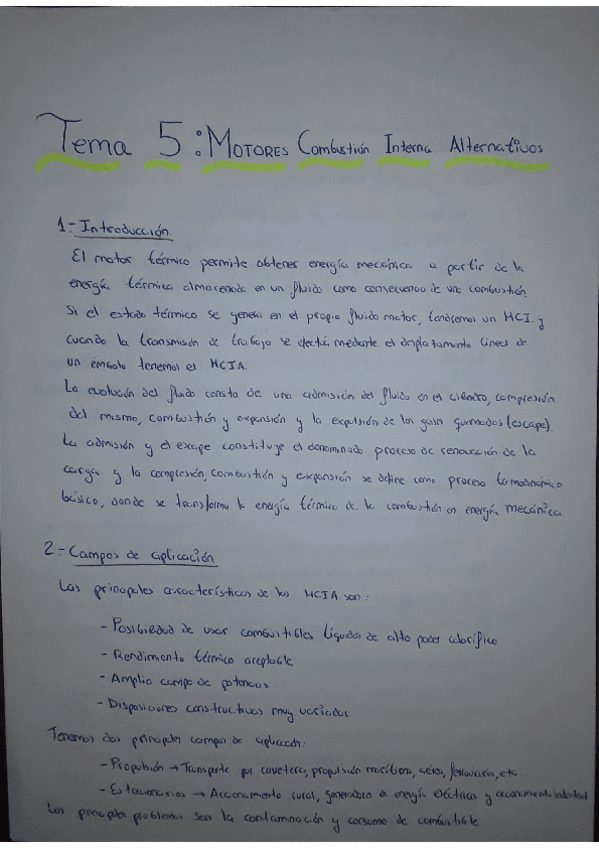 Tema 5: MOTORES Combustión Interna Alternativos
1.- Introducción
El motor térmico permite obtener energía mecánica a partir de la
energía térmica almacenada en un fluido como consecuencia de una combustión.
Si el estado térmico se genera en el propio fluido motor, tendremos un MCI. y
cuando la transmisión de trabajo se efectúa mediante el desplazamiento lineal de
un émbolo tenemos el MCIA.
La evolución del fluido consta de una admisión del fluido en el cilindro, compresión
del mismo, combustión y expansión y la expulsión de los gases quemados (escape).
La admisión y el escape constituye el denominado proceso de renovación de la
carga y la compresión, combustión y expansión se define como proceso termodinámico
básico, donde se transforma la energía térmica de la combustión en energía mecánica.
2.- Campos de aplicación
Las principales características de los MCIA son:
- Posibilidad de usar combustibles líquidos de alto poder calorífico
- Rendimiento térmico aceptable
- Amplio campo de potencias
- Disposiciones constructivas muy variadas
Tenemos dos principales campos de aplicación:
- Propulsión → Transporte por carretera, propulsión marítima, aérea, ferroviaria, etc
- Estacionarios → Accionamiento rural, generadores de energía eléctrica y accionamiento industrial
Los principales problemas son la contaminación y consumo de combustible